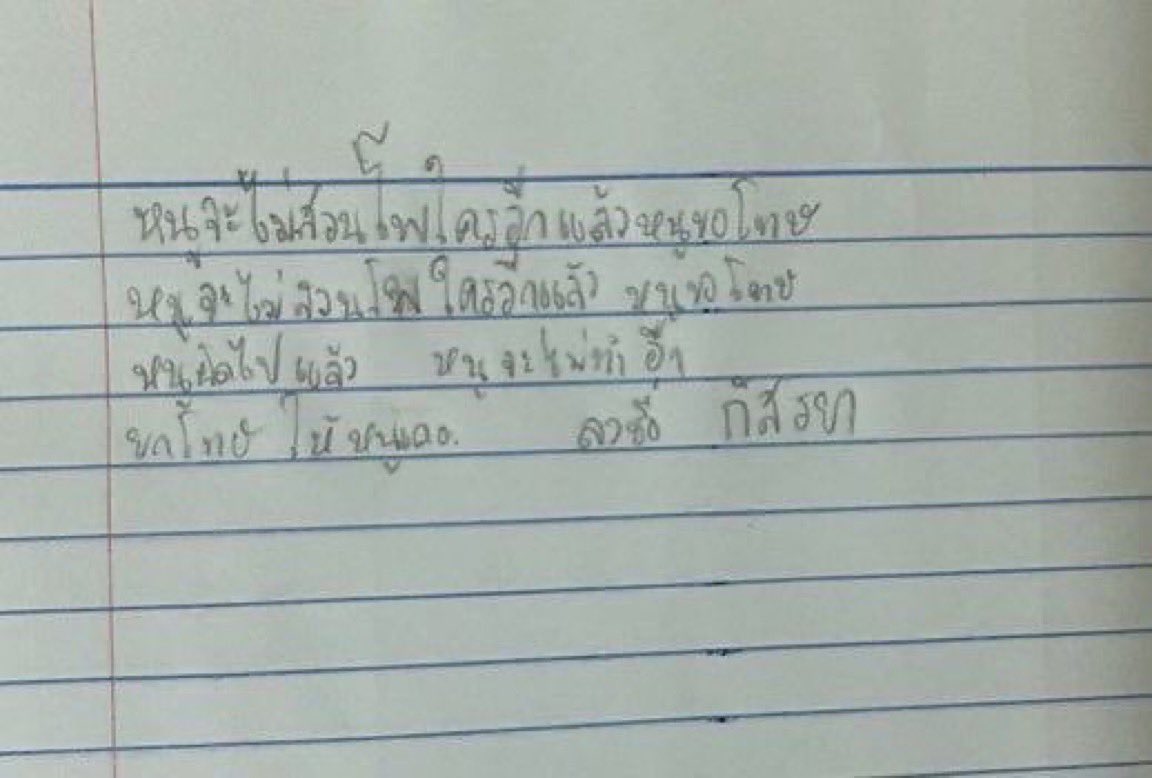 หนูจะไม่ส่วนโพใครอีกแล้วหนูขอโทษ
หนูจะไม่ส่วนโพใครอีกแล้ว หนูขอโทษ
หนูผิดไปแล้ว หนูจะไม่ทำอีก
ยกโทษให้หนูเถอะ. ลงชื่อ